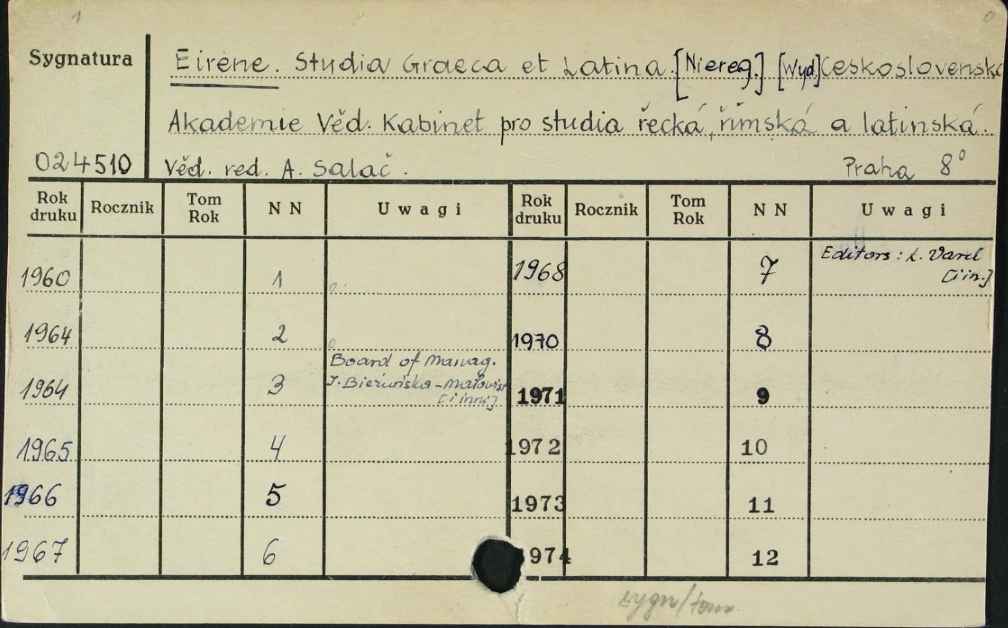 1 0
Sygnatura Eirene. Studia Graeca et Latina. [Niereg.] [Wyd] Československa
Akademie Věd. Kabinet pro studia řecká, římská a latinská.
024510 Věd. red. A. Salač. Praha 8°
Rok druku Rocznik Tom Rok NN Uwagi Rok druku Rocznik Tom Rok NN Uwagi
1960 1 1968 7 Editors: L. Varcl [i in.]
1964 2 1970 8
1964 3 Board of Manag. I. Bieżuńska-Małowist [i inni] 1971 9
1965 4 1972 10
1966 5 1973 11
1967 6 1974 12
sygn/tom